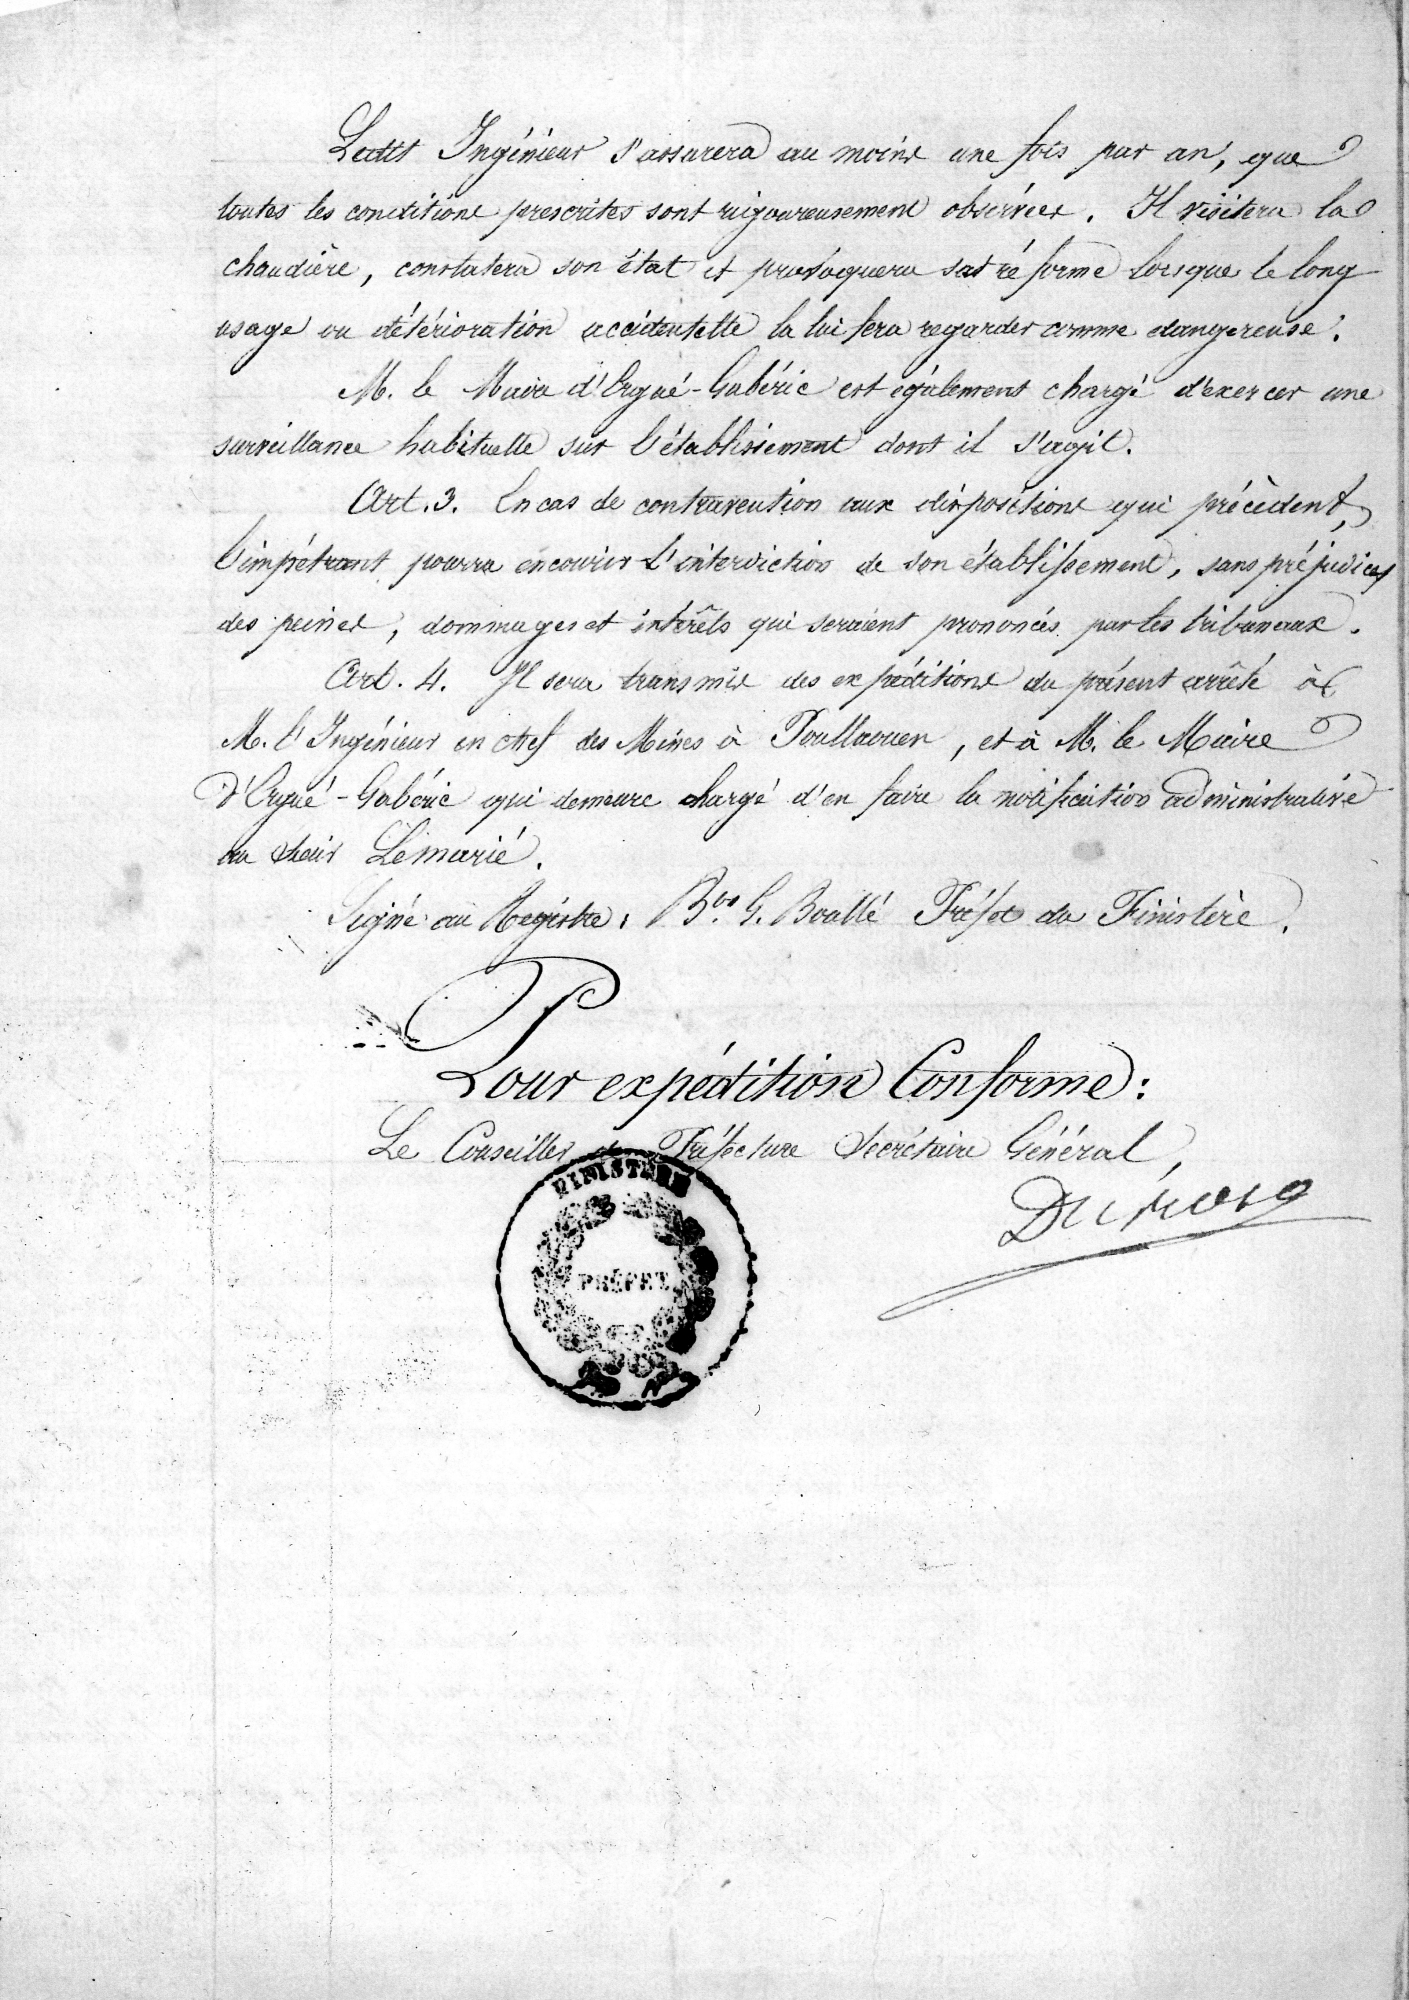 Ledit Ingénieur s'assurera au moins une fois par an, que
toutes les conditions prescrites sont rigoureusement observées. Il visitera la
chaudière, constatera son état et provoquera sa réforme lorsque le long
usage ou détérioration accidentelle la lui fera regarder comme dangereuse.
M. le Maire d'Ergué-Gabéric est également chargé d'exercer une
surveillance habituelle sur l'établissement dont il s'agit.
Art. 3. En cas de contravention aux dispositions qui précèdent,
l'impétrant pourra encourir l'interdiction de son établissement, sans préjudice
des peines, dommages et intérêts qui seraient prononcés par les tribunaux.
Art. 4. Il sera transmis des expéditions du présent arrêté à
M. l'Ingénieur en chef des Mines à Poullaouen, et à M. le Maire
d'Ergué-Gabéric qui demeure chargé d'en faire la notification administrative
au sieur Lemarié.
Signé au Registre, Bon G. Boullé Préfet du Finistère.
Pour expédition Conforme:
Le Conseiller de Préfecture Secrétaire Général,
FINISTERE
PRÉFET